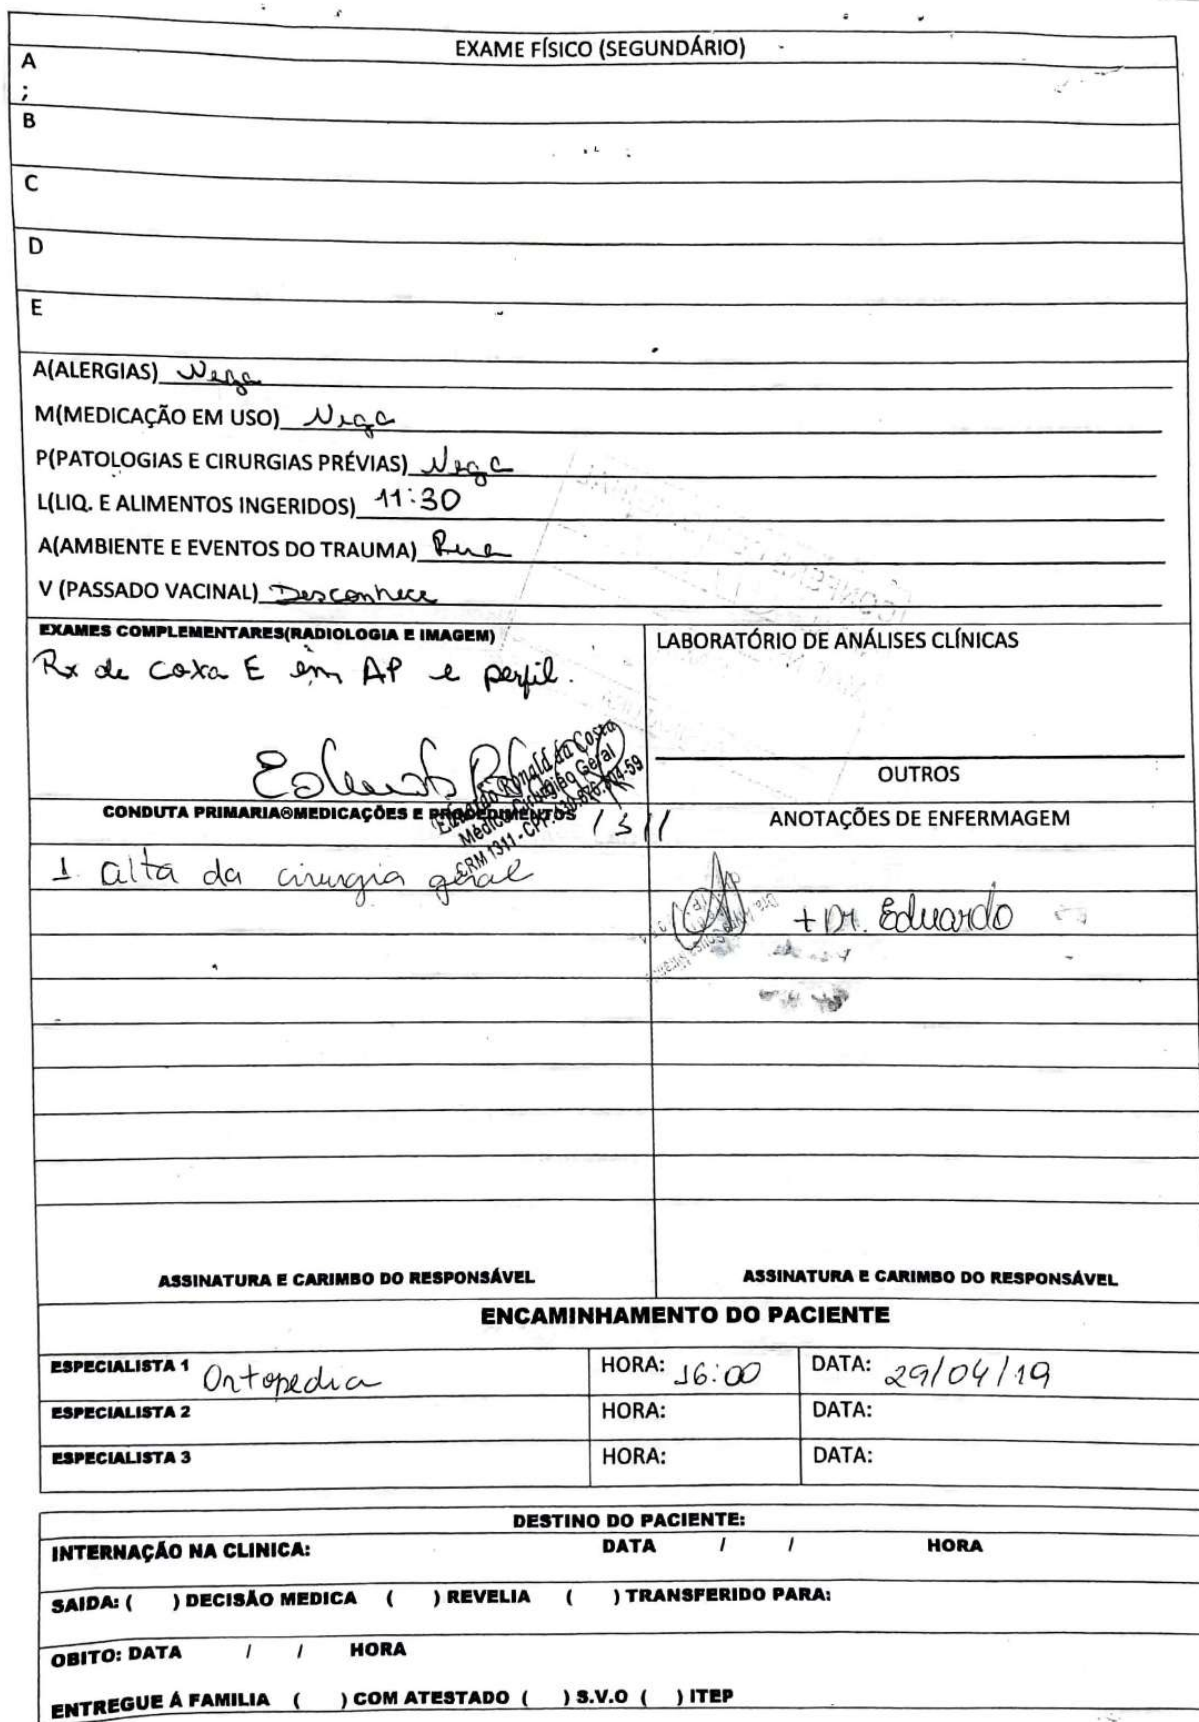 EXAME FÍSICO (SEGUNDÁRIO)
A
;
B
C
D
E
A(ALERGIAS) Nega
M(MEDICAÇÃO EM USO) Nega
P(PATOLOGIAS E CIRURGIAS PRÉVIAS) Nega
L(LIQ. E ALIMENTOS INGERIDOS) 11:30
A(AMBIENTE E EVENTOS DO TRAUMA) Rua
V (PASSADO VACINAL) Desconhece
EXAMES COMPLEMENTARES(RADIOLOGIA E IMAGEM)
Rx de coxa E em AP e perfil.
Eduardo Ronald da Costa
Médico Cirurgião Geral
CRM 1311 - CPF:
1311
LABORATÓRIO DE ANÁLISES CLÍNICAS
OUTROS
CONDUTA PRIMARIA®MEDICAÇÕES E PROCEDIMENTOS
1. alta da cirurgia geral
ANOTAÇÕES DE ENFERMAGEM
+ Dr. Eduardo
ASSINATURA E CARIMBO DO RESPONSÁVEL
ASSINATURA E CARIMBO DO RESPONSÁVEL
ENCAMINHAMENTO DO PACIENTE
ESPECIALISTA 1 Ortopedia HORA: 16:00 DATA: 29/04/19
ESPECIALISTA 2 HORA: DATA:
ESPECIALISTA 3 HORA: DATA:
DESTINO DO PACIENTE:
INTERNAÇÃO NA CLINICA: DATA / / HORA
SAIDA: ( ) DECISÃO MEDICA ( ) REVELIA ( ) TRANSFERIDO PARA:
OBITO: DATA / / HORA
ENTREGUE Á FAMILIA ( ) COM ATESTADO ( ) S.V.O ( ) ITEP